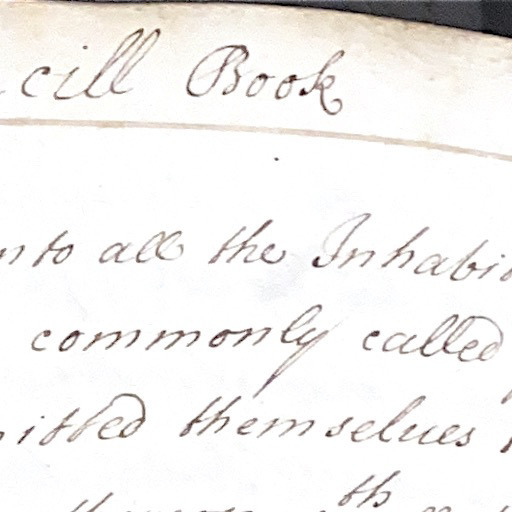 cill Book
nto all the Inhabi
commonly called
itted themselues
th